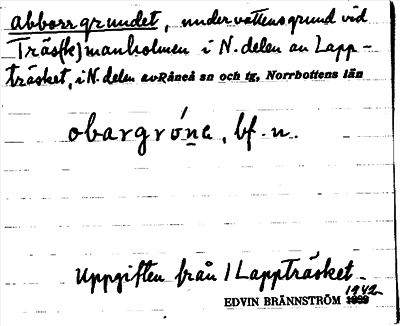 abborrgrundet, undervattensgrund vid
Träs(k)manholmen i N. delen av Lapp-
träsket, i N. delen av Råneå sn och tg, Norrbottens län
obargróne, bf. n.
Uppgiften från 1 Lappträsket
1942
EDVIN BRÄNNSTRÖM